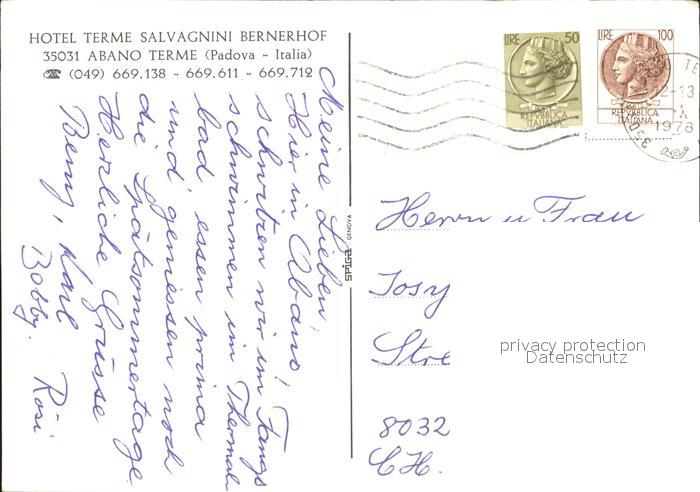 HOTEL TERME SALVAGNINI BERNERHOF
35031 ABANO TERME (Padova - Italia)
☎ (049) 669.138 - 669.611 - 669.712
LIRE 50
REPVBBLICA
ITALIANA
LIRE 100
REPVBBLICA
ITALIANA
1978
Meine Lieben,
Hier in Abano,
schwitzen wir im Fango
schwimmen im Thermal-
bad, essen prima
und geniessen noch
die Spätsommertage
Herzliche Grüsse
Benny, Karl
Bobby. Rösi
SPIGA GENOVA
Herrn u Frau
Josy
Stre
8032
CH.
privacy protection
Datenschutz